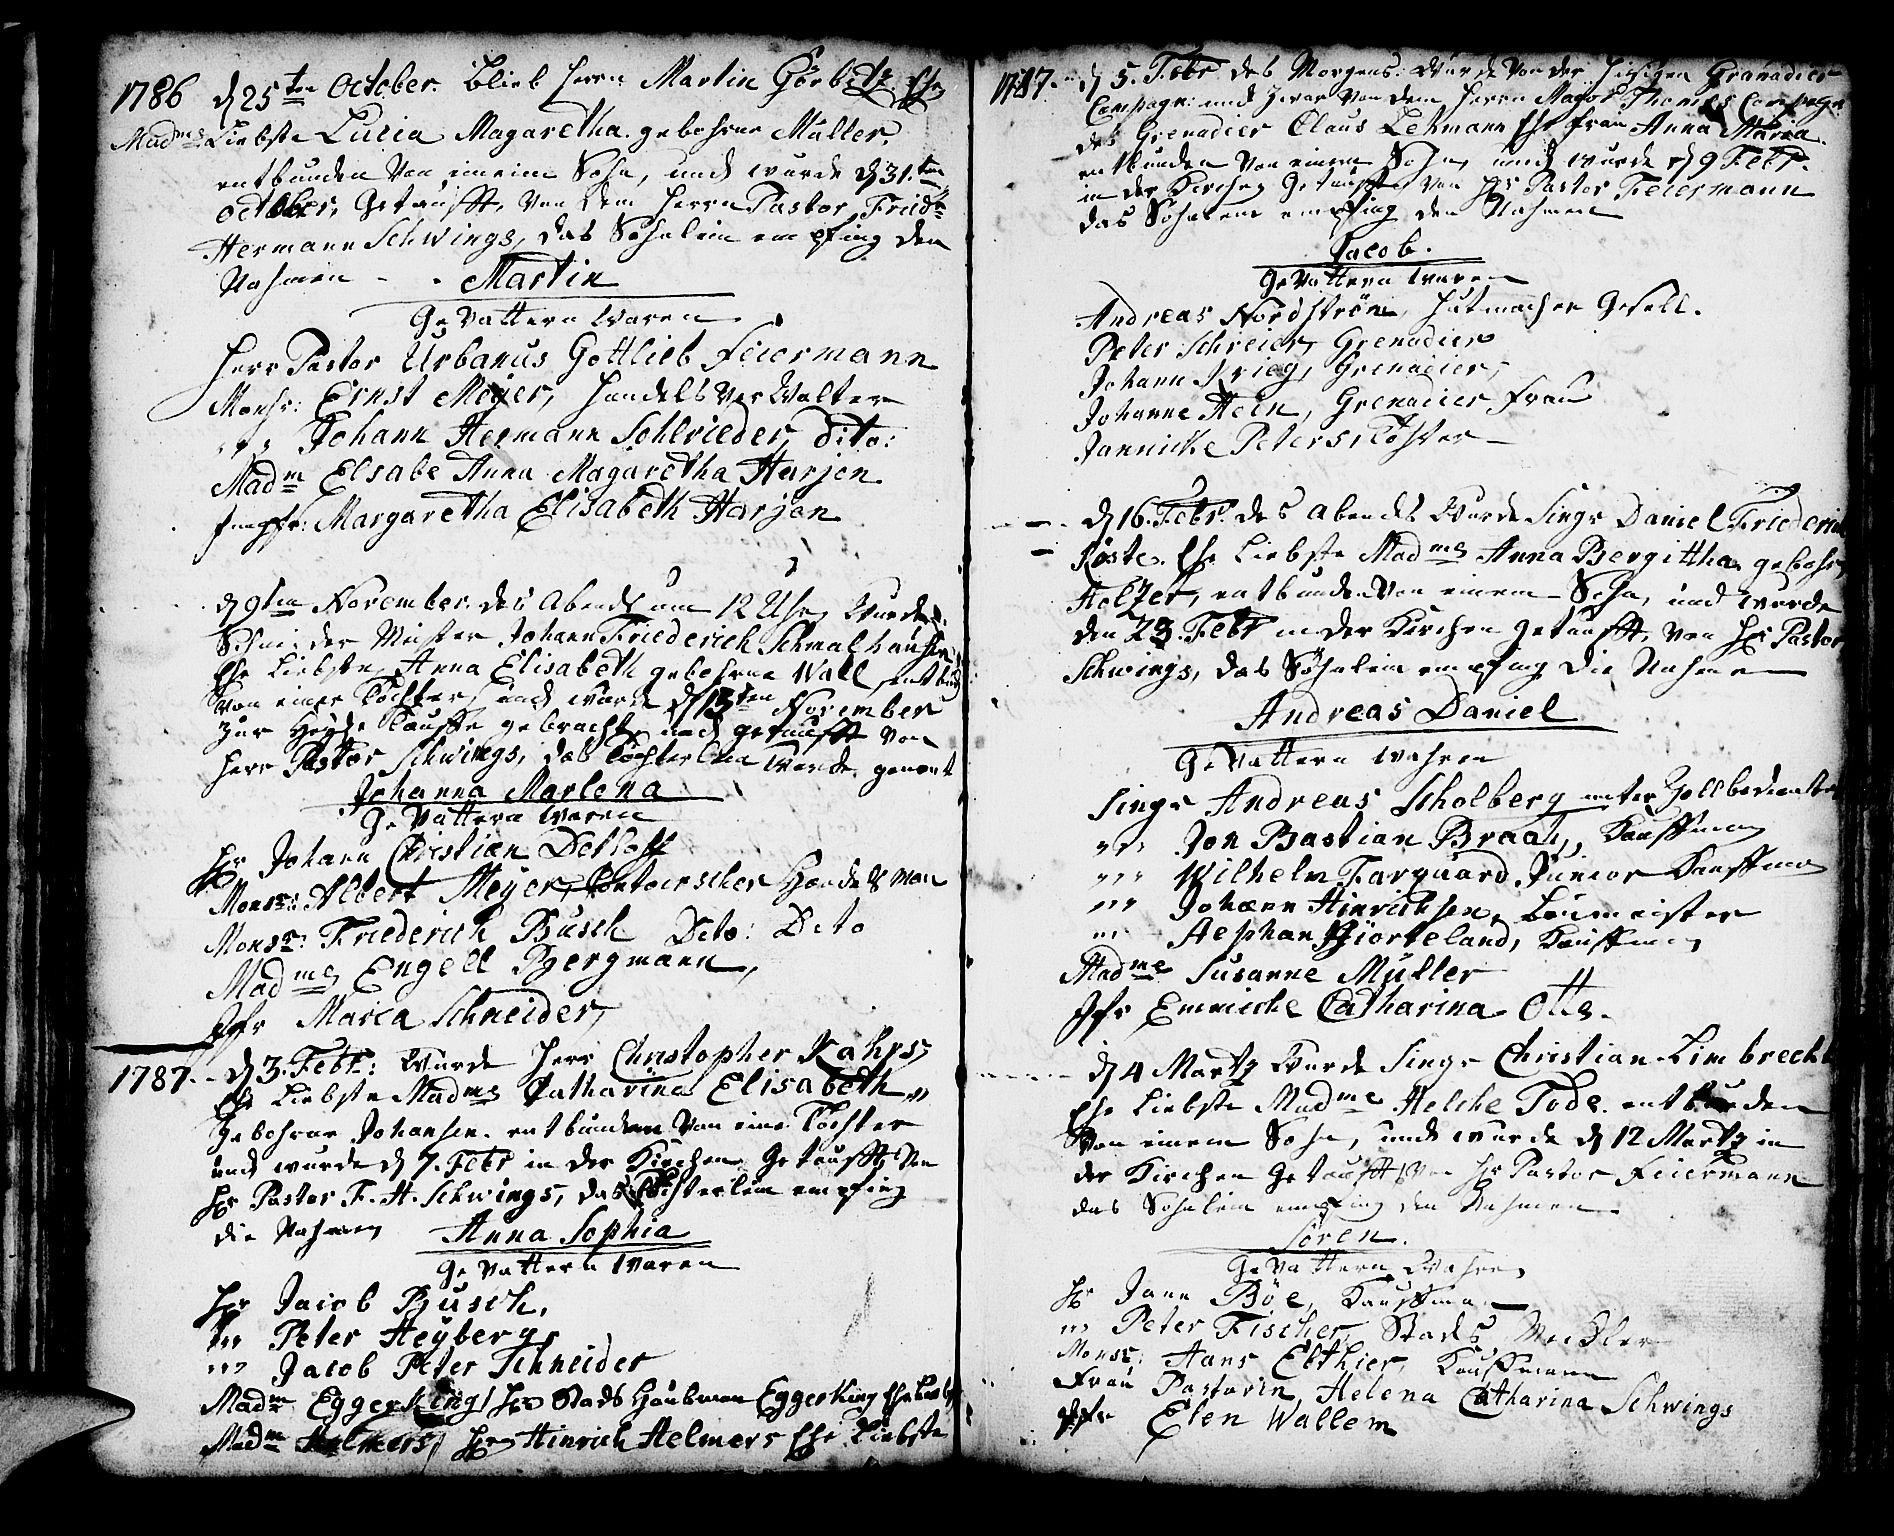 1786 d 25ten October. blieb Herrn Martin Görbitz Ehe
Madms Liebste Lucia Magaretha gebohrne Müller.
entbunden Von eineim Sohn, und wurde d 31.ten
October, Getaufft, Von dem Herrn Pastor Fridr
Hermann Schwings, das Söhnlein empfing den
Nahmen - - Martin
Gevattern Waren
Herr Pastor Urbanus Gottlieb Feiermann
Monsr: Ernst Meyer, Handels Verwalter
" " Johann Hermann Schlrieder, Dito:
Madm Elsabe Anna Magaretha Harjen
Jungfr: Margaretha Elisabeth Harjen
d 9ten November. des Abends um 12 Uhr, Wurde
Schneider Meister Johann Friederich Schmalhausen
Ehe Liebste Anna Elisabeth gebohrne Wall, entbund
Von einer Tochter und wurde d 13ten November
zur Heyl: Tauffe gebracht, und getaufft von
Herr Pastor Schwings, das Töchterlein wurde genent
Johanna Marlena
Gevattern Waren
Hr Johann Christian Detloff
Monsr: Albert Meyer, Contoirscher Handels man
Monsr: Friederich Busch Dito: Dito
Madme Engell Bergmann,
Jgfr Maria Schneider,
1787. - d 3. Febr: Wurde Herr Christopher Kahrs
Ehe Liebste Madms Catharina Elisabeth
Gebohrne Johansen. entbunden Von eine Tochter
und wurde d 7. Febr in der Kirchen Getaufft, Von
Hr Pastor F. H. Schwings, das Töchterlein empfing
die Nahmen Anna Sophia
Gevattern Waren
Hr Jacob Busch,
" " Peter Heyberg,
" " Jacob Peter Schneider
Madm Eggerking, Hr Stads Haubtman Eggerking Ehe Liebst
Madm Helmers, Hr Hinrich Helmers Ehe Liebste
1787. d 5. Febr des Morgens. Wurde Von der hiesigen Granadier
Compagn: und zwar Von dem Herrn Major Thomes Compagn
des Grenadier Claus Lehmann Ehe frau Anna Maria.
entbunden Von einem Sohn, und wurde d 9 Febr.
in der Kirchen Getaufft, Von Hr Pastor Feiermann
das Söhnlein empfing den Nahmen
Jacob.
Gevattern Waren
Andreas Nordström, Hutmacher Gesell.
Peter Schreier, Grenadier
Johann Krieg, Grenadier,
Johanne Hein, Grenadier Frau
Jannicke Peters, Tochter
d 16. Febr. des Abends Wurde Singr Daniel Friederich
Röste. Ehe Liebste Madms Anna Bergitha. gebohr,
Holzer, entbunden Von einem Sohn, und wurde
den 23. Febr in der Kirchen Getaufft, Von Hr Pastor
Schwings, das Söhnlein empfing die Nahmen
Andreas Daniel
Gevattern Wahren
Singr Andreas Scholberg unter Zollbedienter
" " Jon Bastian Braah, Kauffman
" " " Wilhelm Farquard Junior Kauffman
" " " Johann Hinrichsen, Baumeister
" " Stephan Biorteland, Kauffman
Madme Susanne Müller
Jfr Emmicke Catharina Otte.
d 4 Martz Wurde Singr Christian Limbrecht
Ehe Liebste Madme Helche Tode. entbunden
Von einem Sohn, und wurde d 12 Martz in
der Kirchen Getaufft, Von Hr Pastor Feiermann
das Söhnlein empfing den Nahmen
Sören.
Gevattern Wahren
Hr Jann Böe, Kauffman
" " Peter Fischer, Stads Meckler
Monsr: Hans Ebthier, Kauffmann
Frau Pastorin, Helena Catharina Schwings
Jfr Elen Wallem